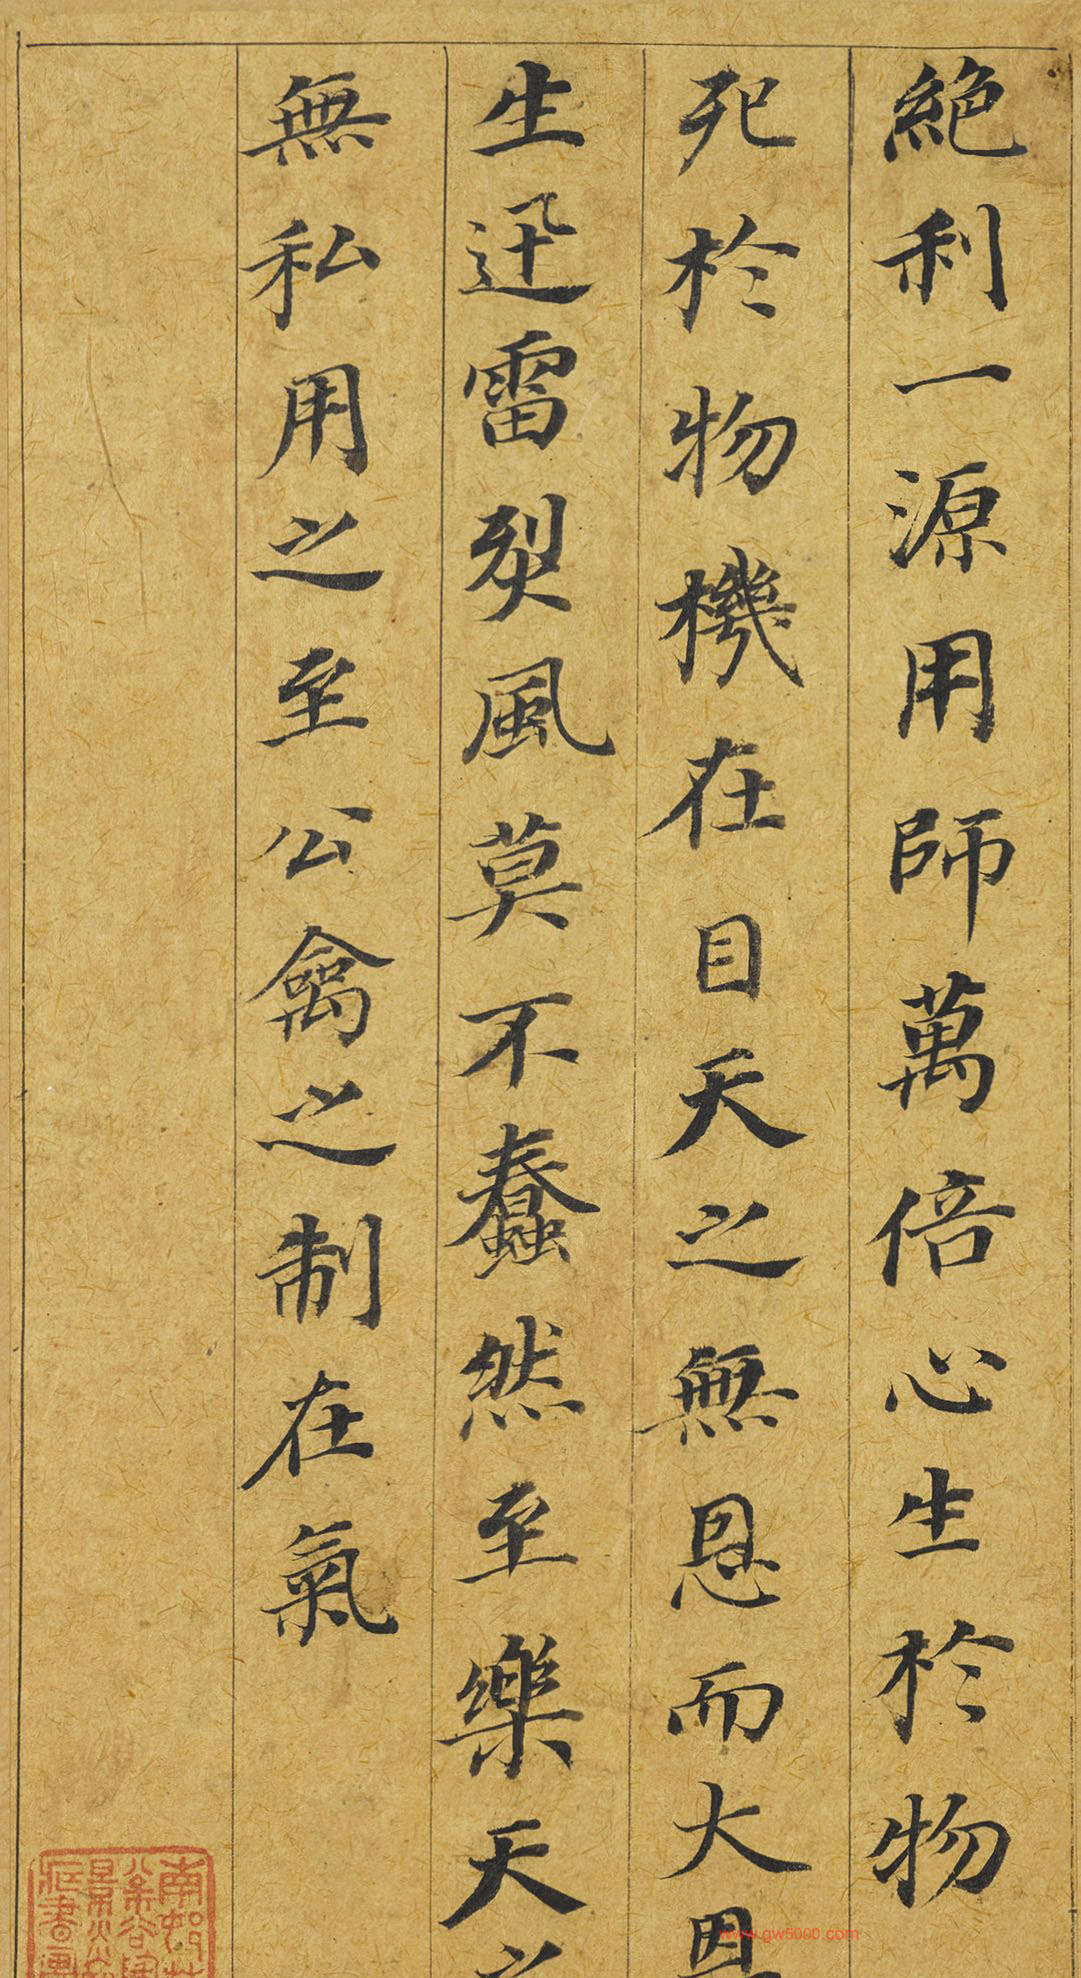 絶利一源用師萬倍心生於物
死於物機在目天之無恩而大恩
生迅雷烈風莫不蠢然至樂天之
無私用之至公禽之制在氣
www.gw5000.com